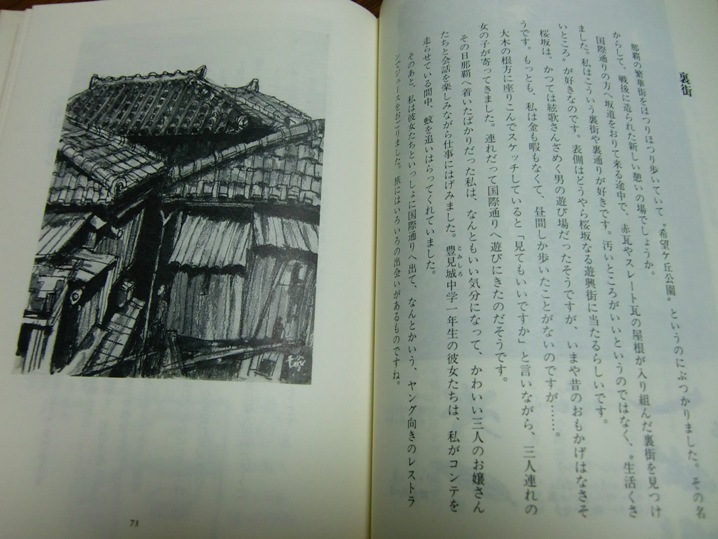 裏街
那覇の繁華街をほつりほつり歩いていて〝希望ケ丘公園〟というのにぶつかりました。その名
からして、戦後に造られた新しい憩いの場でしょうか。
国際通りの方へ坂道をおりて来る途中で、赤瓦やスレート瓦の屋根が入り組んだ裏街を見つけ
ました。私はこういう裏街や裏通りが好きです。汚いところがいいというのではなく、〝生活くさ
いところ〟が好きなのです。表側はどうやら桜坂なる遊興街に当たるらしいです。
桜坂は、かつては絃歌さんざめく男の遊び場だったそうですが、いまや昔のおもかげはなさそ
うです。もっとも、私は金も暇もなくて、昼間しか歩いたことがないのですが……。
大木の根方に座りこんでスケッチしていると「見てもいいですか」と言いながら、三人連れの
女の子が寄ってきました。連れだって国際通りへ遊びにきたのだそうです。
その日那覇へ着いたばかりだった私は、なんともいい気分になって、かわいい三人のお嬢さん
たちと会話を楽しみながら仕事にはげみました。豊見城中学一年生の彼女たちは、私がコンテを
とみしろ
走らせている間中、蚊を追いはらってくれていました。
そのあと、私は彼女たちといっしょに国際通りへ出て、なんとかいう、ヤング向きのレストラ
ンでジュースをおごりました。旅にはいろいろの出会いがあるものですね。
73